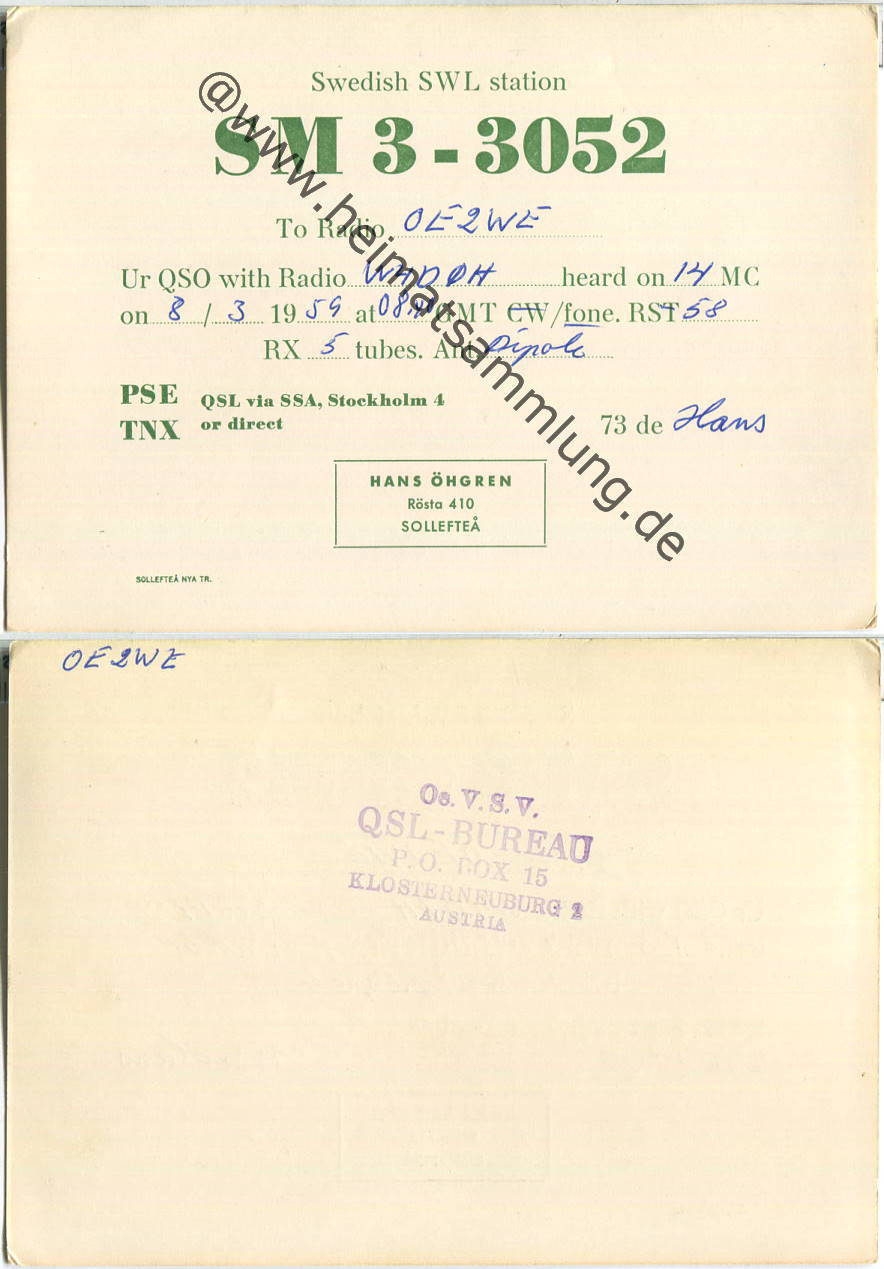 Swedish SWL station
SM 3 - 3052
To Radio OE2WE
Ur QSO with Radio heard on 14 MC
on 8 / 3 19 59 at GMT CW/fone. RST 58
RX 5 tubes. Ant Dipole
PSE QSL via SSA, Stockholm 4
TNX or direct
73 de Hans
HANS ÖHGREN
Rösta 410
SOLLEFTEÅ
SOLLEFTEÅ NYA TR.
@www.heimatsammlung.de
OE2WE
Oe. V. S. V.
QSL-BUREAU
P. O. BOX 15
KLOSTERNEUBURG 2
AUSTRIA